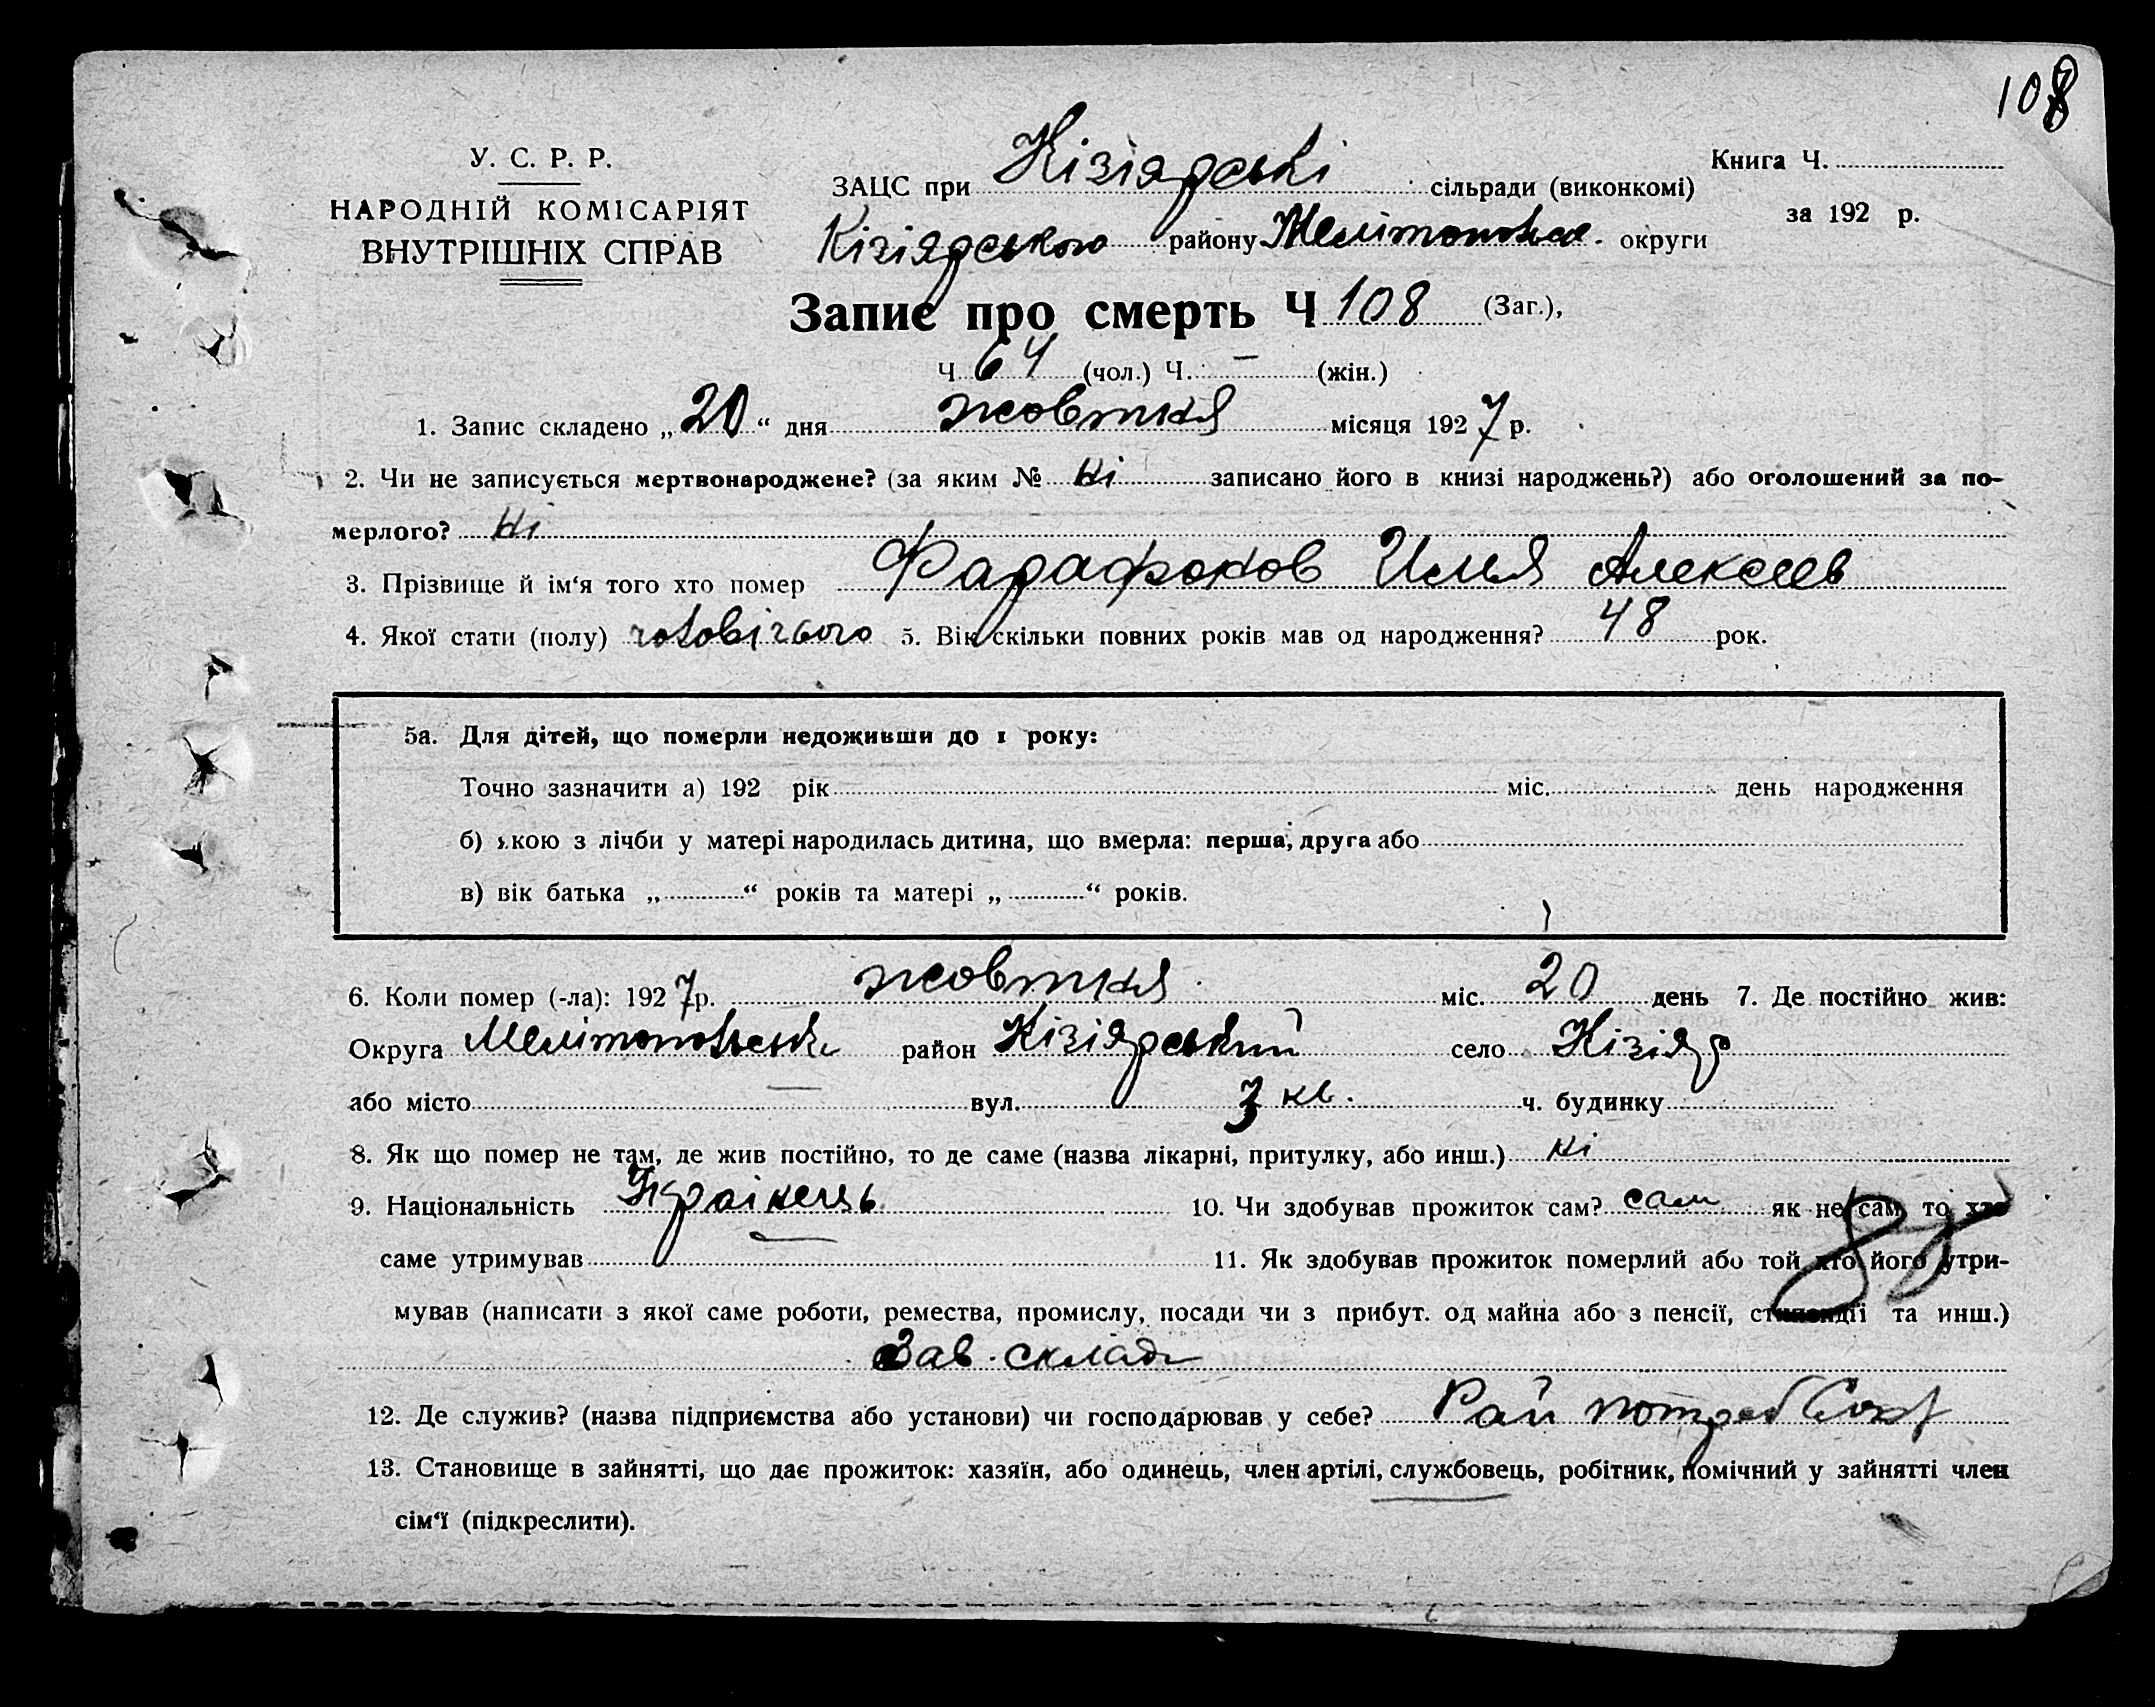 108
У. С. Р. Р.
НАРОДНІЙ КОМІСАРІЯТ
ВНУТРІШНІХ СПРАВ
ЗАЦС при Кізіярські сільради (виконкомі)
Книга Ч.
за 192 р.
Кізіярського району Мелітопольск. округи
Запис про смерть Ч 108 (Заг.),
Ч 64 (чол.) Ч. – (жін.)
1. Запис складено „20“ дня жовтня місяця 1927 р.
2. Чи не записується мертвонароджене? (за яким № ні записано його в книзі народжень?) або оголошений за по-
мерлого? ні
3. Прізвище й ім‘я того хто помер Фарафонов Илия Алексеев
4. Якої стати (полу) чоловічого 5. Вік скільки повних років мав од народження? 48 рок.
5а. Для дітей, що померли недоживши до 1 року:
Точно зазначити а) 192 рік міс. день народження
б) якою з лічби у матері народилась дитина, що вмерла: перша, друга або
в) вік батька „ “ років та матері „ “ років.
6. Коли помер (-ла): 1927 р. жовтня міс. 20 день 7. Де постійно жив:
Округа Мелітопольськ район Кізіярський село Кізіяр
або місто вул. 3 кв. ч. будинку
8. Як що помер не там, де жив постійно, то де саме (назва лікарні, притулку, або инш.) ні
9. Національність Украінець 10. Чи здобував прожиток сам? сам як не сам, то хто
саме утримував 11. Як здобував прожиток померлий або той хто його утри-
мував (написати з якої саме роботи, ремества, промислу, посади чи з прибут. од майна або з пенсії, стипендії та инш.)
Зав. склад
12. Де служив? (назва підприємства або установи) чи господарював у себе? Рай
13. Становище в зайнятті, що дає прожиток: хазяїн, або одинець, член артілі, службовець, робітник, помічний у зайнятті член
сім‘ї (підкреслити).